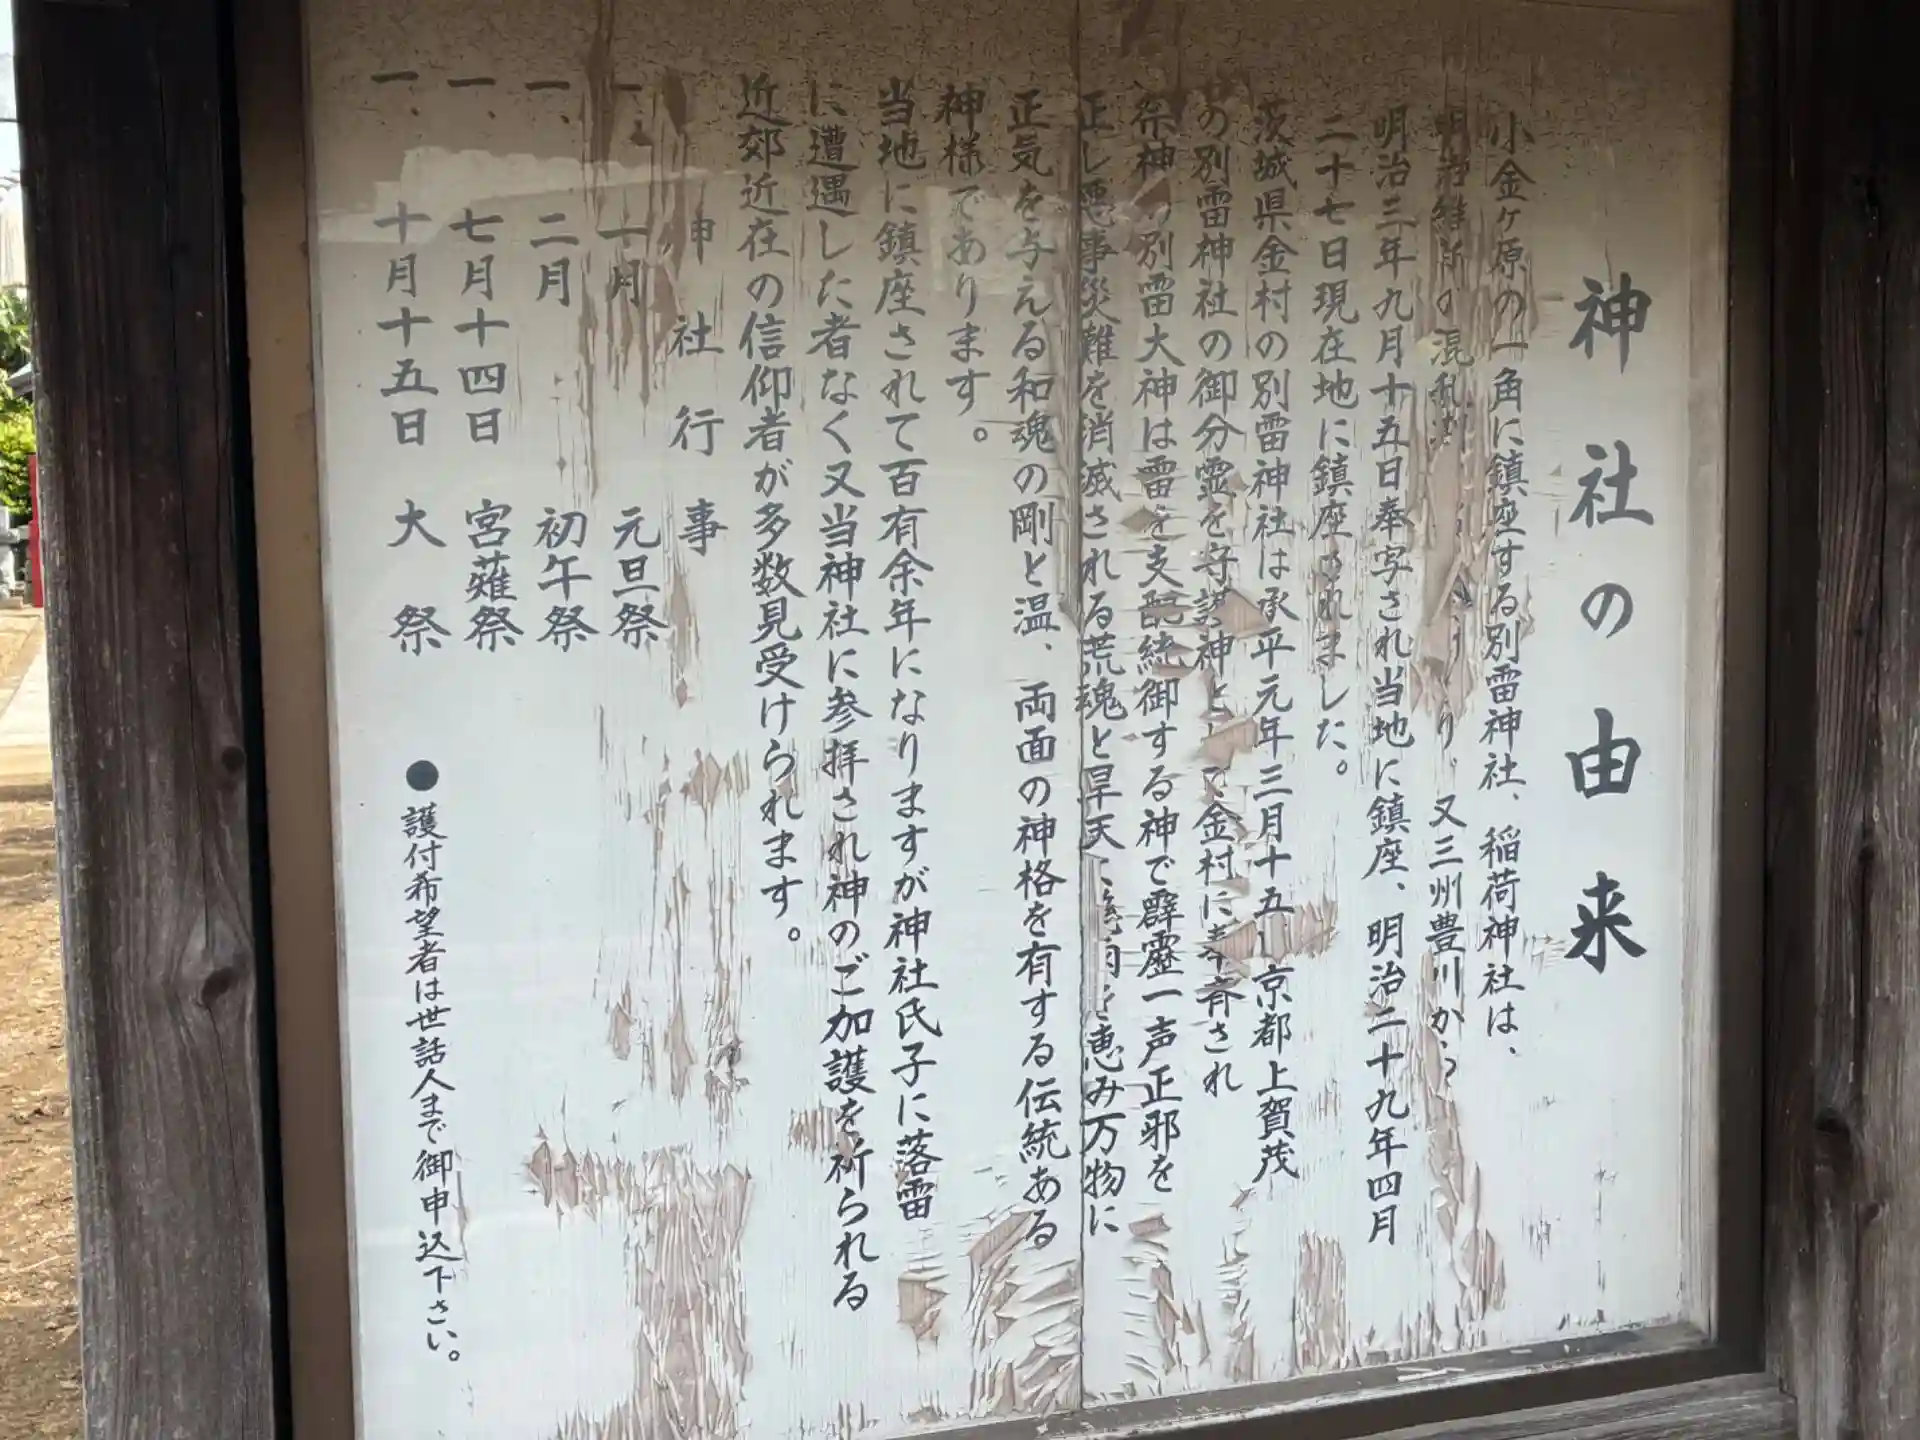 神社の由来
小金ヶ原の一角に鎮座する別雷神社、稲荷神社は、
明治維新の混乱 り、又三州豊川から
明治三年九月十五日奉字され当地に鎮座、明治二十九年四月
二十七日現在地に鎮座されました。
茨城県金村の別雷神社は承平元年三月十五 京都上賀茂
の別雷神社の御分霊を守護神と 金村に奉斎され
祭神の別雷大神は雷を支配統御する神で霹靂一声正邪を
正し悪事災難を消滅される荒魂と旱天 雨を恵み万物に
正気を与える和魂の剛と温、両面の神格を有する伝統ある
神様であります。
当地に鎮座されて百有余年になりますが神社氏子に落雷
に遭遇した者なく又当神社に参拝され神のご加護を祈られる
近郊近在の信仰者が多数見受けられます。
神社行事
一、一月 元旦祭
一、二月 初午祭
一、七月十四日 宮薙祭
一、十月十五日 大祭
●護付希望者は世話人まで御申込下さい。